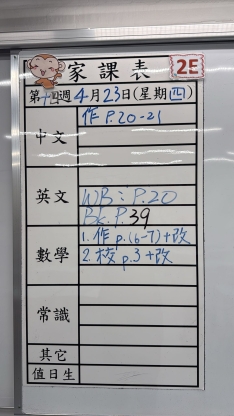 家課表 2E
第十四週4月23日(星期四)
中文
作 P.20-21
英文
WB: P.20
Bk.P.39
數學
1. 作 p.(6-7)+改
2. 校 p.3+改
常識
其它
值日生